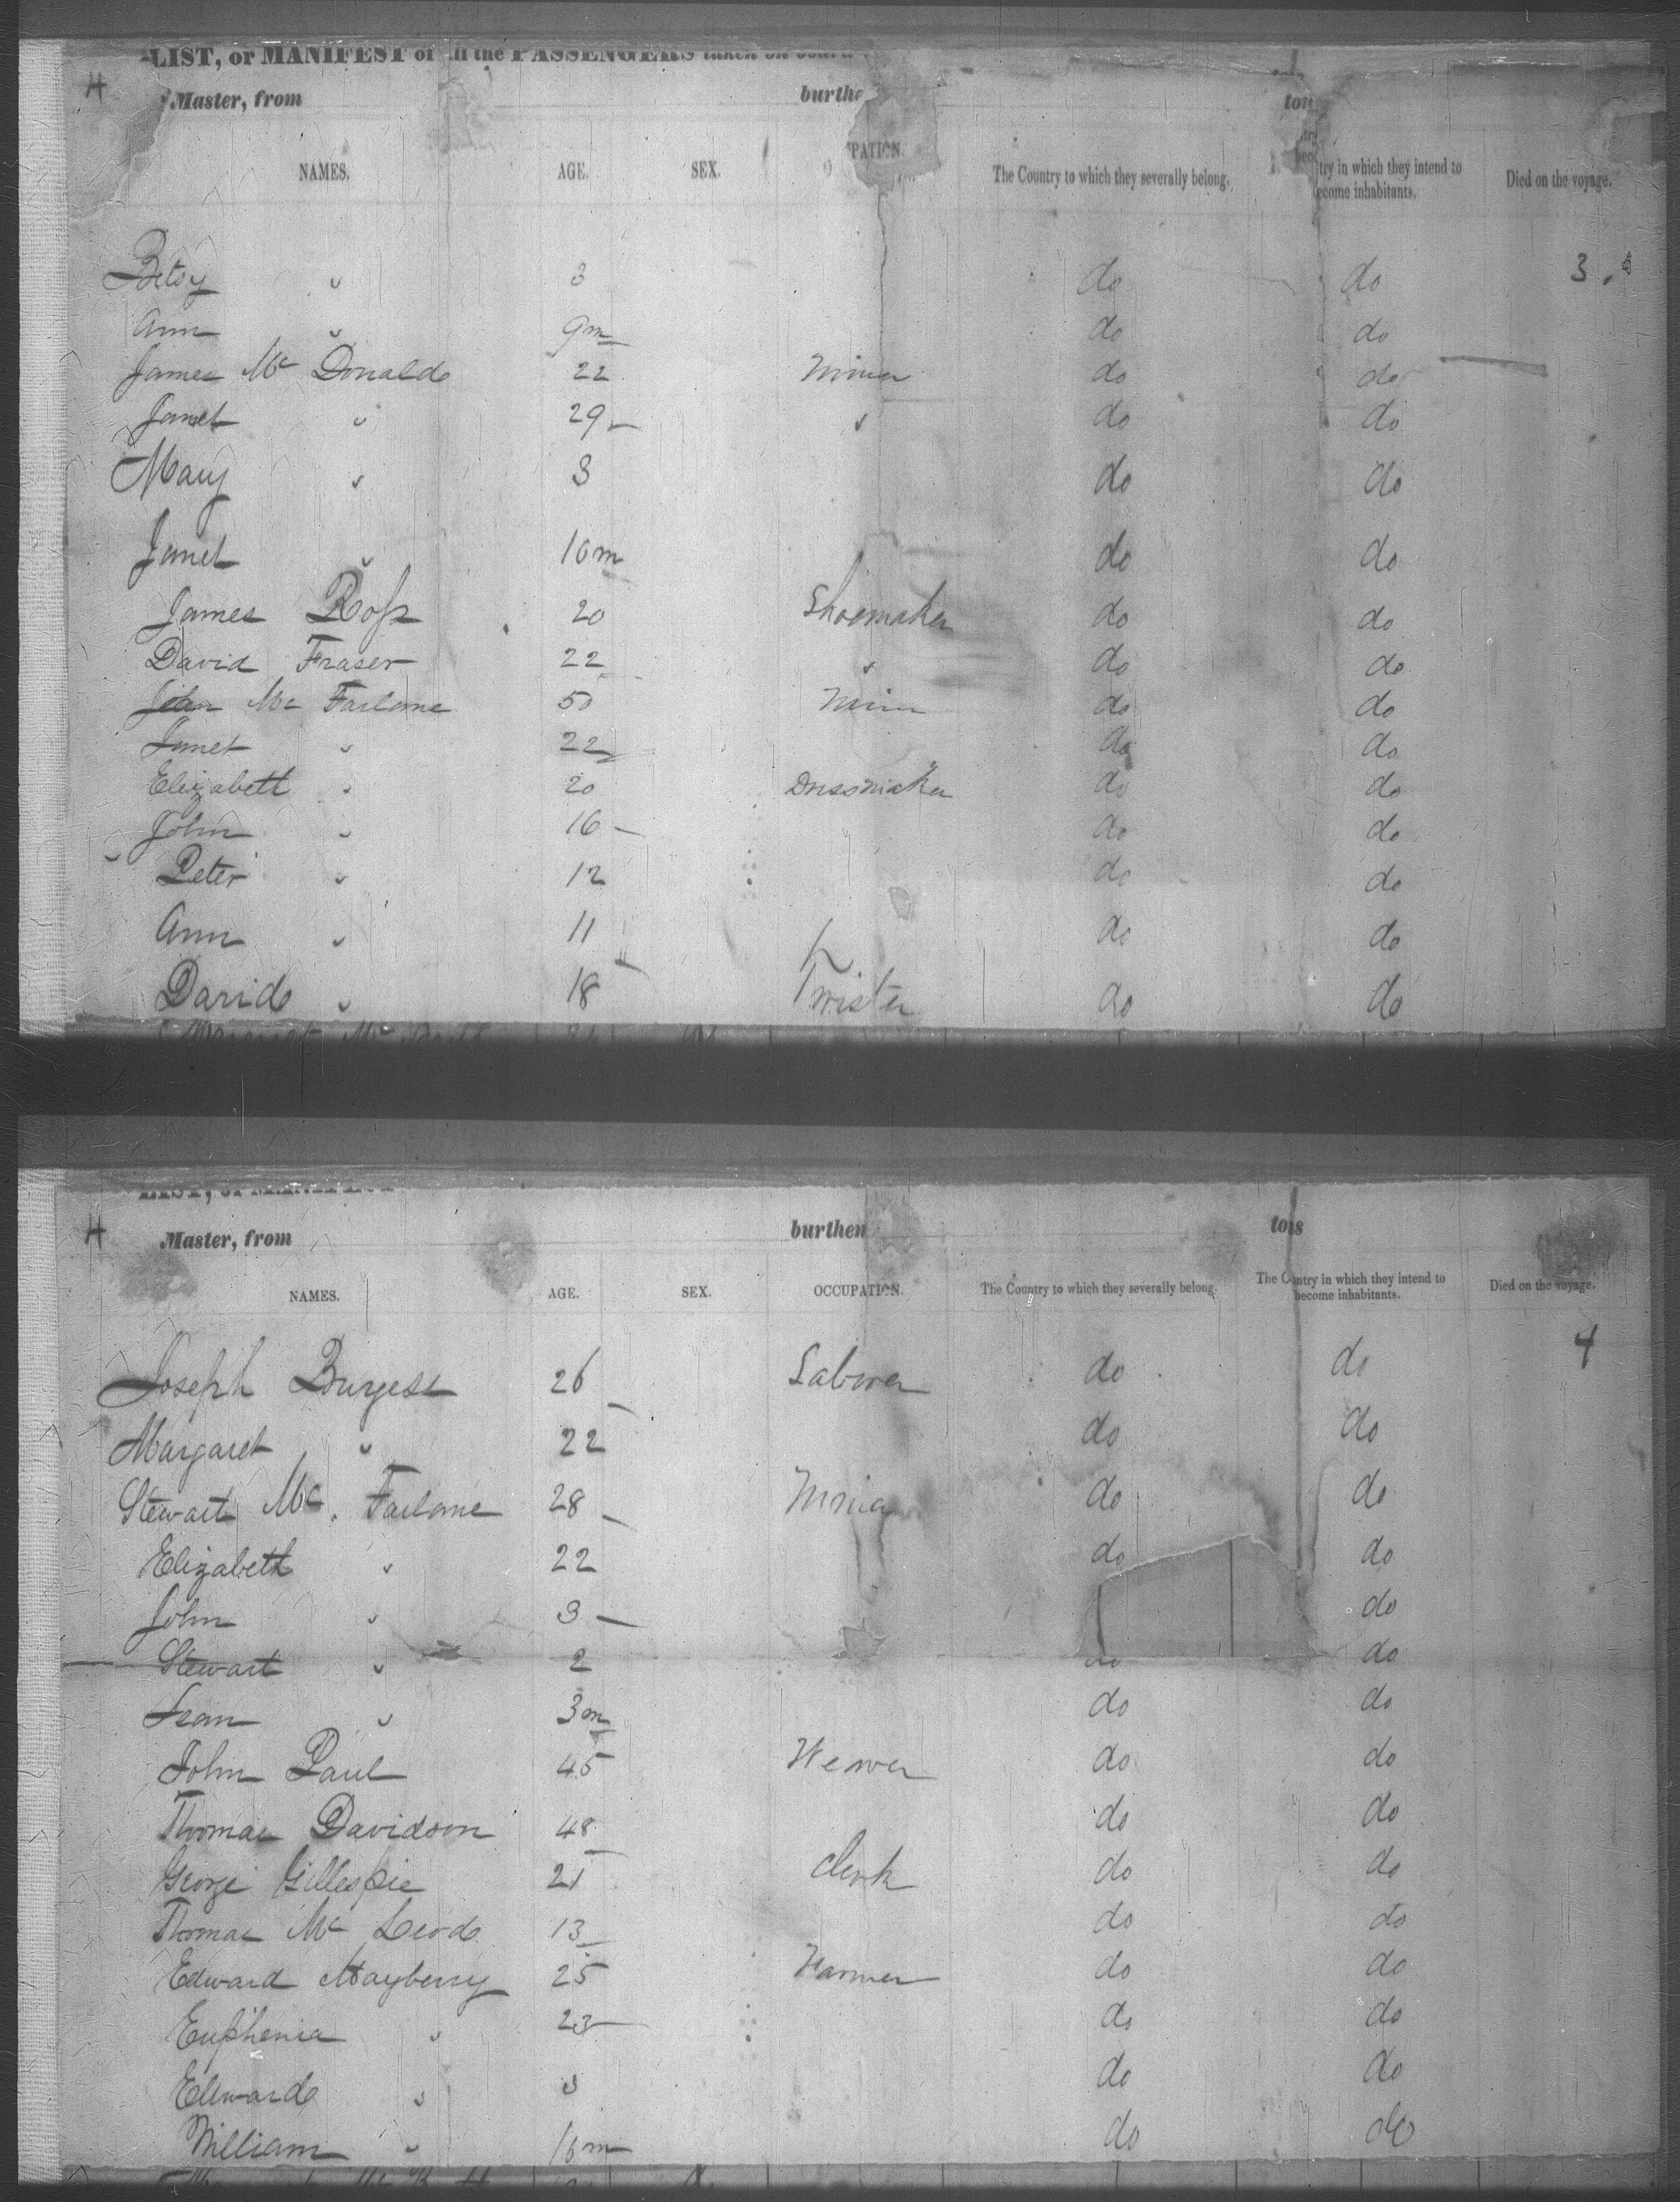 LIST, or MANIFEST of all the PASSENGERS taken on board
H Master, from burthe tons
NAMES. AGE. SEX. PATION. The Country to which they severally belong. try in which they intend to become inhabitants. Died on the voyage.
Betsy " 3 do do 3.
Ann " 9m do do
James Mc Donald 22 Miner do do
Janet " 29 " do do
Mary " 3 do do
Janet " 10m do do
James Ross 20 Shoemaker do do
David Fraser 22 " do do
John Mc Farlane 50 Miner do do
Janet " 22 do do
Elizabeth " 20 Dressmaker do do
John " 16 do do
Peter " 12 do do
Ann " 11 do do
David " 18 Twister do do
H Master, from burthen tons
NAMES. AGE. SEX. OCCUPATION. The Country to which they severally belong. The Country in which they intend to become inhabitants. Died on the voyage.
Joseph Burgess 26 Laborer do do 4
Margaret " 22 do do
Stewart Mc. Farlane 28 Miner do do
Elizabeth " 22 do do
John " 3 do
Stewart " 2 do do
Jean " 3m do do
John Paul 45 Weaver do do
Thomas Davidson 48 do do
George Gillespie 21 Clerk do do
Thomas Mc Leod 13 do do
Edward Mayberry 25 Farmer do do
Euphenia " 23 do do
Edward " 3 do do
William " 10m do do